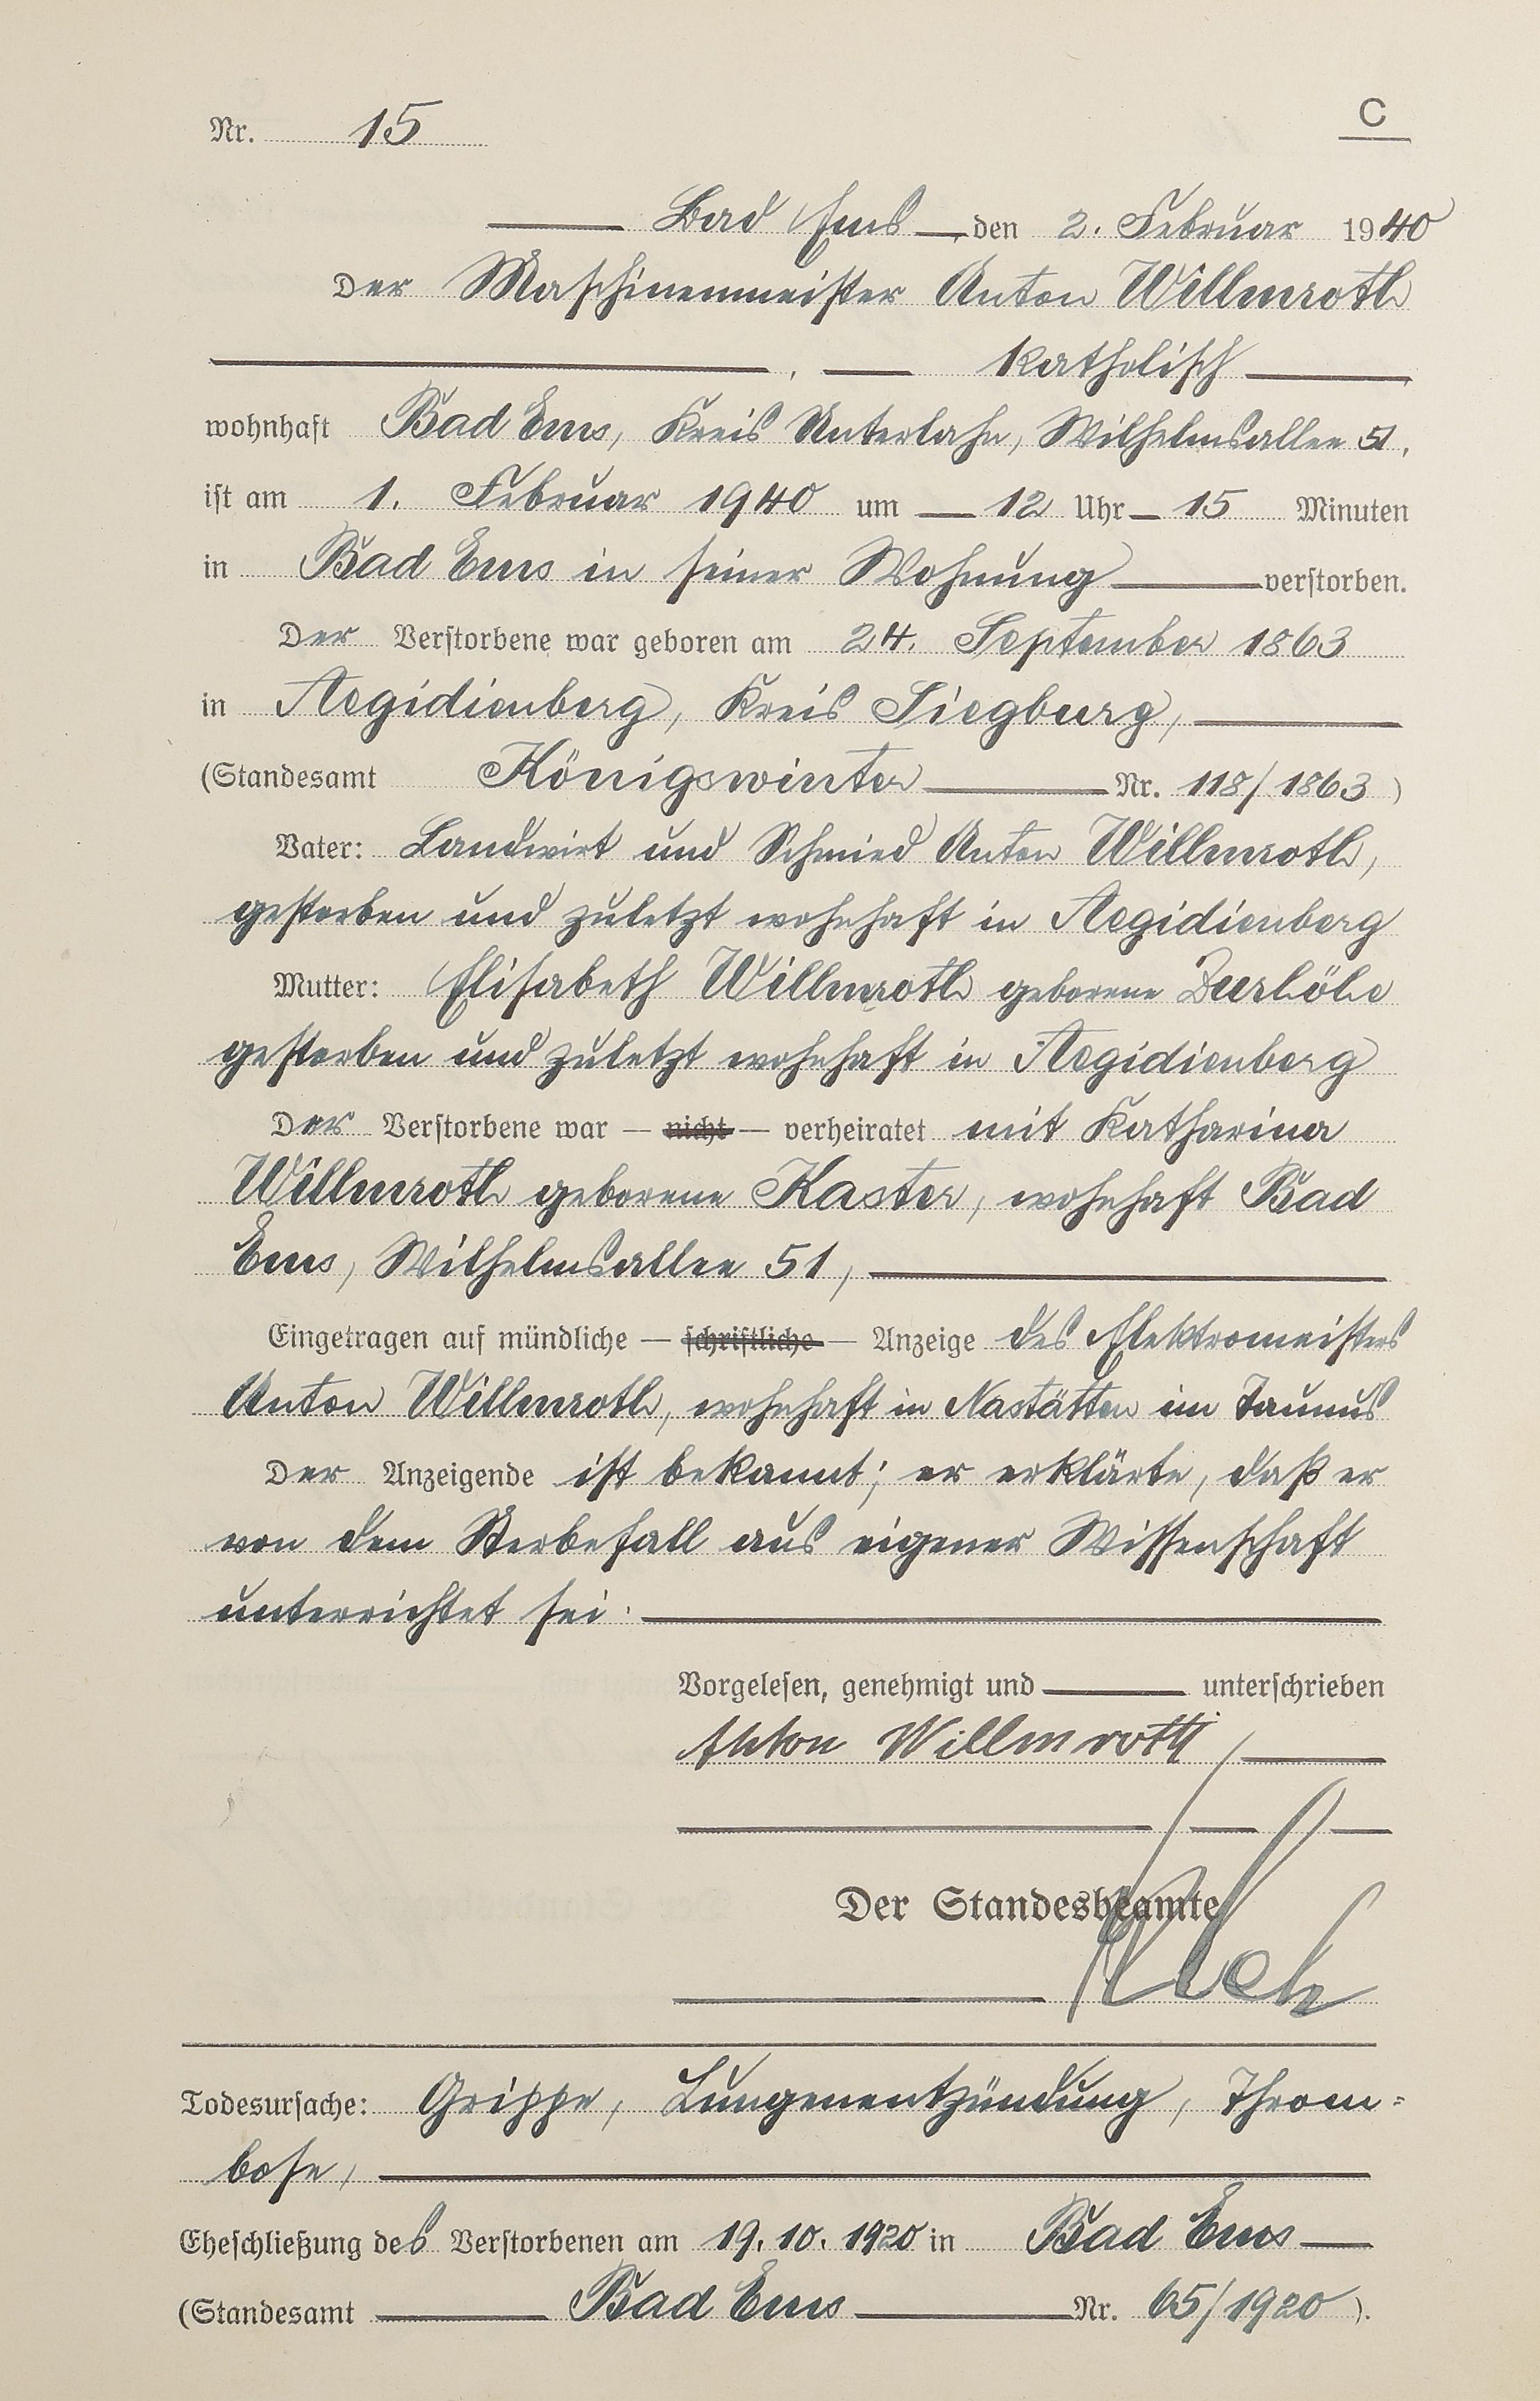 Nr. 15
C
Bad Ems, den 2. Februar 1940
Der Maschinenmeister Anton Willmroth
, katholisch
wohnhaft Bad Ems, Kreis Unterlahn, Wilhelmsallee 51,
ist am 1. Februar 1940 um 12 Uhr 15 Minuten
in Bad Ems in seiner Wohnung verstorben.
Der Verstorbene war geboren am 24. September 1863
in Aegidienberg, Kreis Siegburg,
(Standesamt Königswinter Nr. 118/1863)
Vater: Landwirt und Schmied Anton Willmroth,
gestorben und zuletzt wohnhaft in Aegidienberg
Mutter: Elisabeth Willmroth geborene
gestorben und zuletzt wohnhaft in Aegidienberg
Der Verstorbene war — nicht — verheiratet mit Katharina
Willmroth geborene Kaster, wohnhaft Bad
Ems, Wilhelmsallee 51,
Eingetragen auf mündliche — schriftliche — Anzeige des Elektromeisters
Anton Willmroth, wohnhaft in Nastätten im Taunus
Der Anzeigende ist bekannt; er erklärte, daß er
von dem Sterbefall aus eigener Wissenschaft
unterrichtet sei.
Vorgelesen, genehmigt und unterschrieben
Anton Willmroth
Der Standesbeamte
Todesursache: Grippe, Lungenentzündung, Throm-
bose,
Eheschließung des Verstorbenen am 19. 10. 1920 in Bad Ems
(Standesamt Bad Ems Nr. 65/1920).